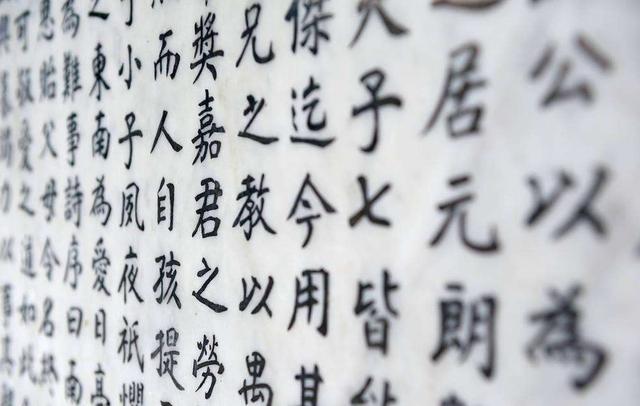 公以為
居元朗
子七皆
傑迄今用其
兄之教以
獎嘉君之勞
而人自孩提
小子夙夜祇懼
之東南為愛日高
為難事詩序曰南
貽父母令名終
可敬愛之道如此